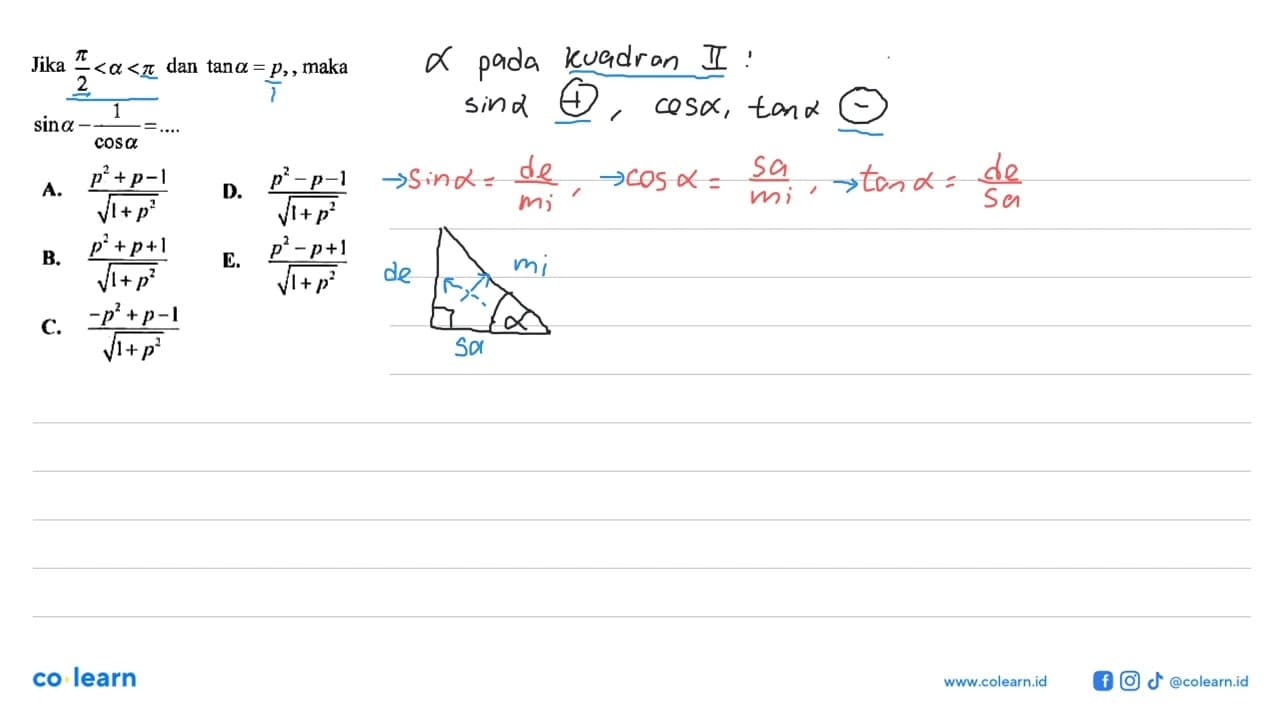 Jika π/2 < α < π dan tan α = p, , maka
1
sin α − 1/cos α = ....
A. (p² + p − 1)/√(1 + p²)
B. (p² + p + 1)/√(1 + p²)
C. (−p² + p − 1)/√(1 + p²)
D. (p² − p − 1)/√(1 + p²)
E. (p² − p + 1)/√(1 + p²)
α pada kuadran II :
sin α (+), cos α, tan α (−)
→ sin α = de/mi, → cos α = sa/mi, → tan α = de/sa
de
mi
α
sa
co learn
www.colearn.id
@colearn.id